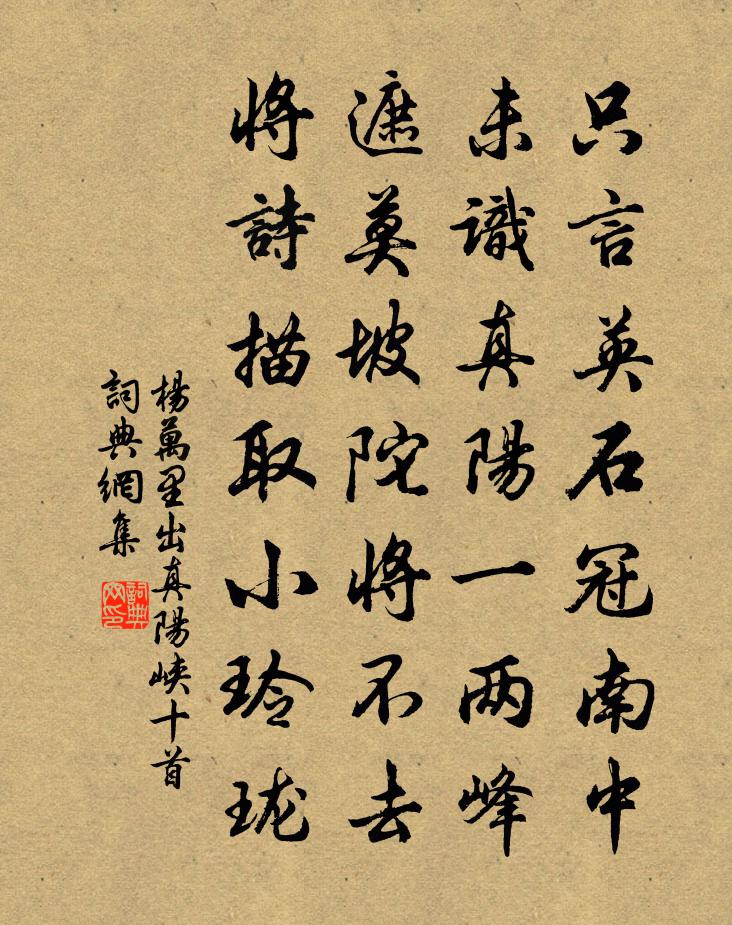 只言英石冠南中
未識真陽一两峰
遮莫坡陀將不去
將詩描取小玲珑
楊萬里出真陽峽十首
詞典網集
詞典网印